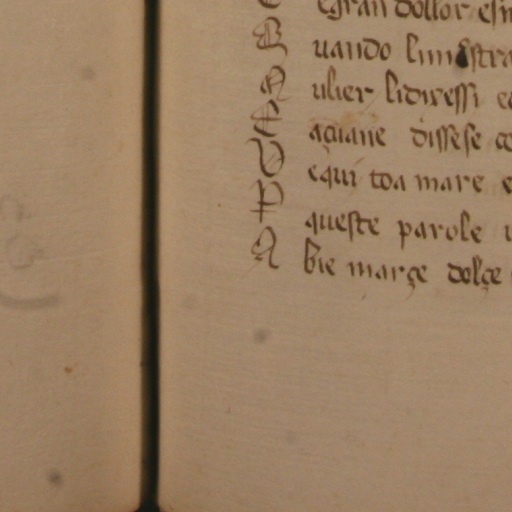 egran dollor esi
Quando lun
Mulier lidiressi e
Eaçuane dissese co
Dequi toa mare e
E queste parole
Abie marçe dolçe